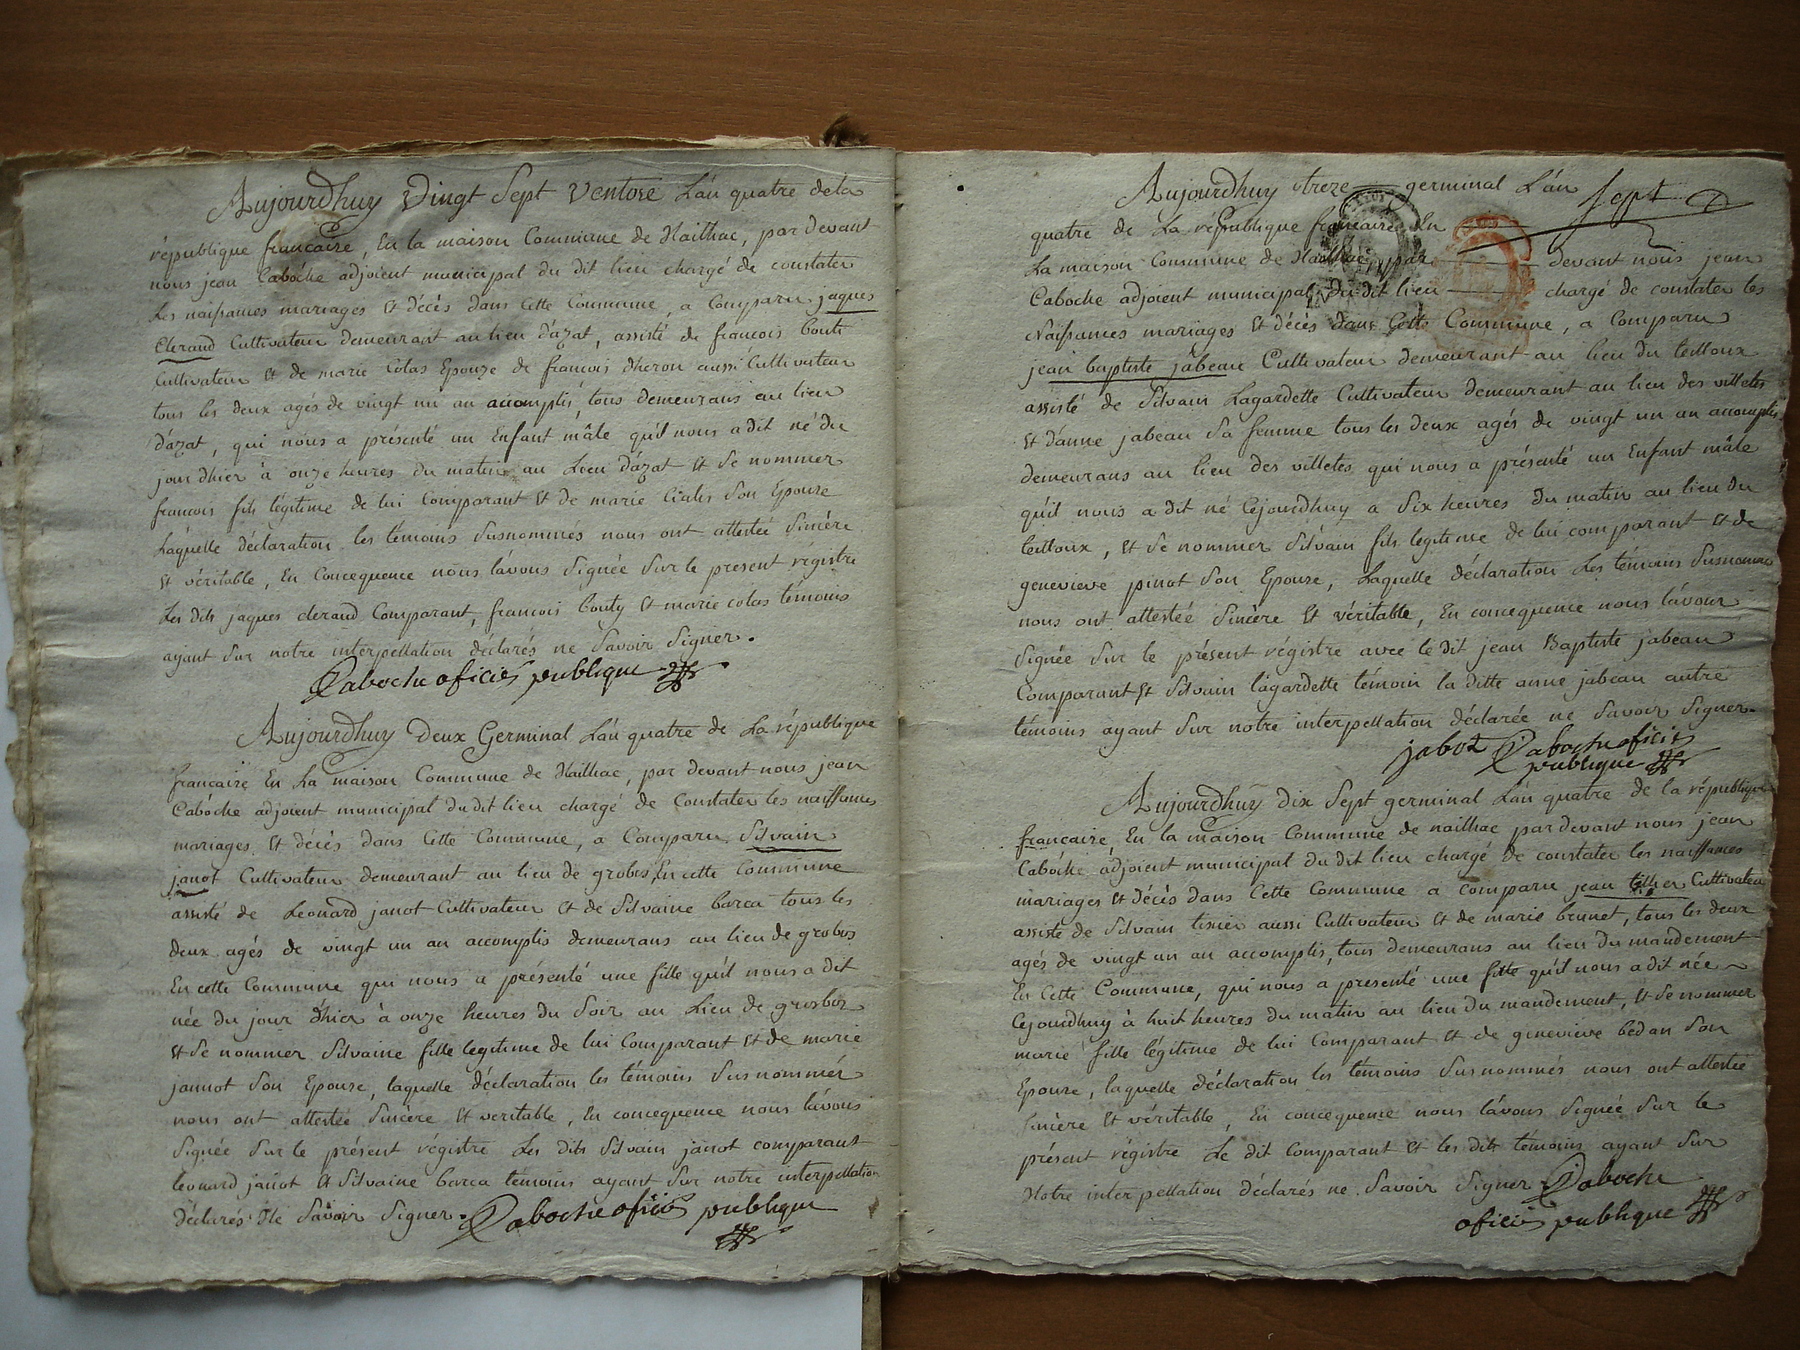 Aujourdhuy Vingt Sept Ventose L'án quatre dela
république francaise, En la maison Commune de Nailhac, par devant
nous jean Caboche adjoient municipal du dit lieu chargé de constater
Les naissances mariages Et décès dans Cette Commune, a Comparu jaques
Clerand Cultivateur demeurant au lieu d'azat, assisté de francois bouti
Cultivateur Et de marie Colas Epouze de francois dheron aussi Cultivateur
tous les deux agés de vingt un an accomplis, tous demeurans au lieu
d'azat, qui nous a présenté un Enfant mâle qu'il nous a dit né du
jour dhier à onze heures du matin au Lieu d'azat Et Se nommer
francois fils légitime de lui Comparant Et de marie Cialis Son Epouze
Láquelle déclaration les témoins Susnommés nous ont attesteé Sincère
Et véritable, En Concequence nous lávons Signée Sur le present régistre
Les dits jaques clerand Comparant, francois bouty Et marie colas temoins
ayant Sur notre intérpellation déclarés ne Savoir Signer.
Caboche oficiés publique
Aujourdhuy Deux Germinal L'án quatre de La république
francaise En La maison Commune de Nailhac, par devant nous jean
Cabóche adjoient municipal du dit lieu chargé de Constater les naissances
mariages Et décès dans Cette Commune, a Comparu Silvain
janot Cultivateur demeurant au lieu de grobos En cette Commune
assisté de Leonard janot Cultivateur Et de Silvaine barca tous les
deux agés de vingt un an accomplis demeurans au lieu de grobos
En cette Commune qui nous a présenté une fille qu'il nous a dit
née du jour d'hier à onze heures du Soir au Lieu de grosbos
Et Se nommer Silvaine fille legitime de lui Comparant Et de marie
jannot Son Epouze, laquelle déclaration les témoins Susnommés
nous ont attestée Sincère Et veritable, En concequence nous lávons
Signée Sur le présent régistre Les dits Silvain janot comparant
leonard janot Et Silvaine barca témoins ayant Sur notre interpellation
déclarés Ne Savoir Signer. Caboche oficiés publique
Sept
Aujourdhuy treze germinal L'án
quatre de La république francaise En
La maison Commune de Nailhac, par devant nous jean
Caboche adjoient municipal du dit lieu chargé de constater les
Naissances mariages Et décès dans Cette Commune, a Comparu
jean baptiste jabeau Cultivateur demeurant au lieu du teilloux
assisté de Silvain Lagardette Cultivateur demeurant au lieu des villetes
Et d'anne jabeau Sa femme tous les deux agés de vingt un an accomplis
demeurans au lieu des villetes, qui nous a présenté un Enfant mâle
qu'il nous a dit né Cejourdhuy a Six heures du matin au lieu du
teilloux, Et Se nommer Silvain fils legitime de lui comparant Et de
genevieve pinot Son Epouze, Laquelle déclaration Les témoins Susnommés
nous ont attestée Sincère Et véritable, En concequence nous lávons
Signée Sur le présent régistre avec le dit jean Baptiste jabeau
Comparant Et Silvain lagardette témoin la ditte anne jabeau autre
témoins ayant Sur notre interpellation déclarée ne Savoir Signer.
jabot Caboche oficiés
publique
Aujourdhuy dix Sept germinal L'án quatre de la république
francaise, En la maison Commune de nailhac par devant nous jean
Cabóche adjoient municipal du dit lieu chargé de constater les naissances
mariages Et décès dans Cette Commune a Comparu jean tillier Cultivateur
assisté de Silvain tixier aussi Cultivateur Et de marie brunet, tous les deux
agés de vingt un an accomplis, tous demeurans au lieu du mandement
En Cette Commune, qui nous a présenté une fille qu'il nous a dit née
Cejourdhuy à huit heures du matin au lieu du mandement, Et Se nommer
marie fille légitime de lui Comparant Et de genevieve bedan Son
Epouze, laquelle déclaration les témoins Susnommés nous ont attestée
Sincère Et véritable, En concequence nous lávons Signée Sur le
présent régistre Le dit Comparant Et les dits témoins ayant Sur
Notre interpellation déclarés ne Savoir Signer Caboche
oficiés publique